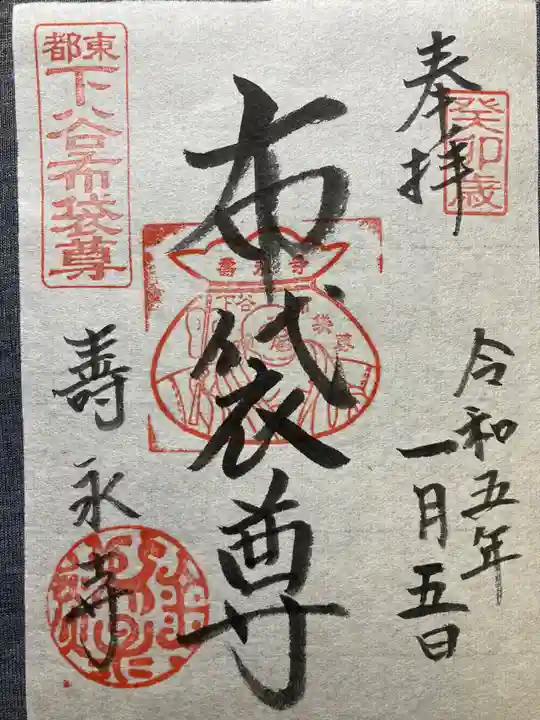 奉拝
癸卯歳
令和五年
一月五日
布袋尊
壽永寺
下谷
東都
下谷布袋尊
寿永寺